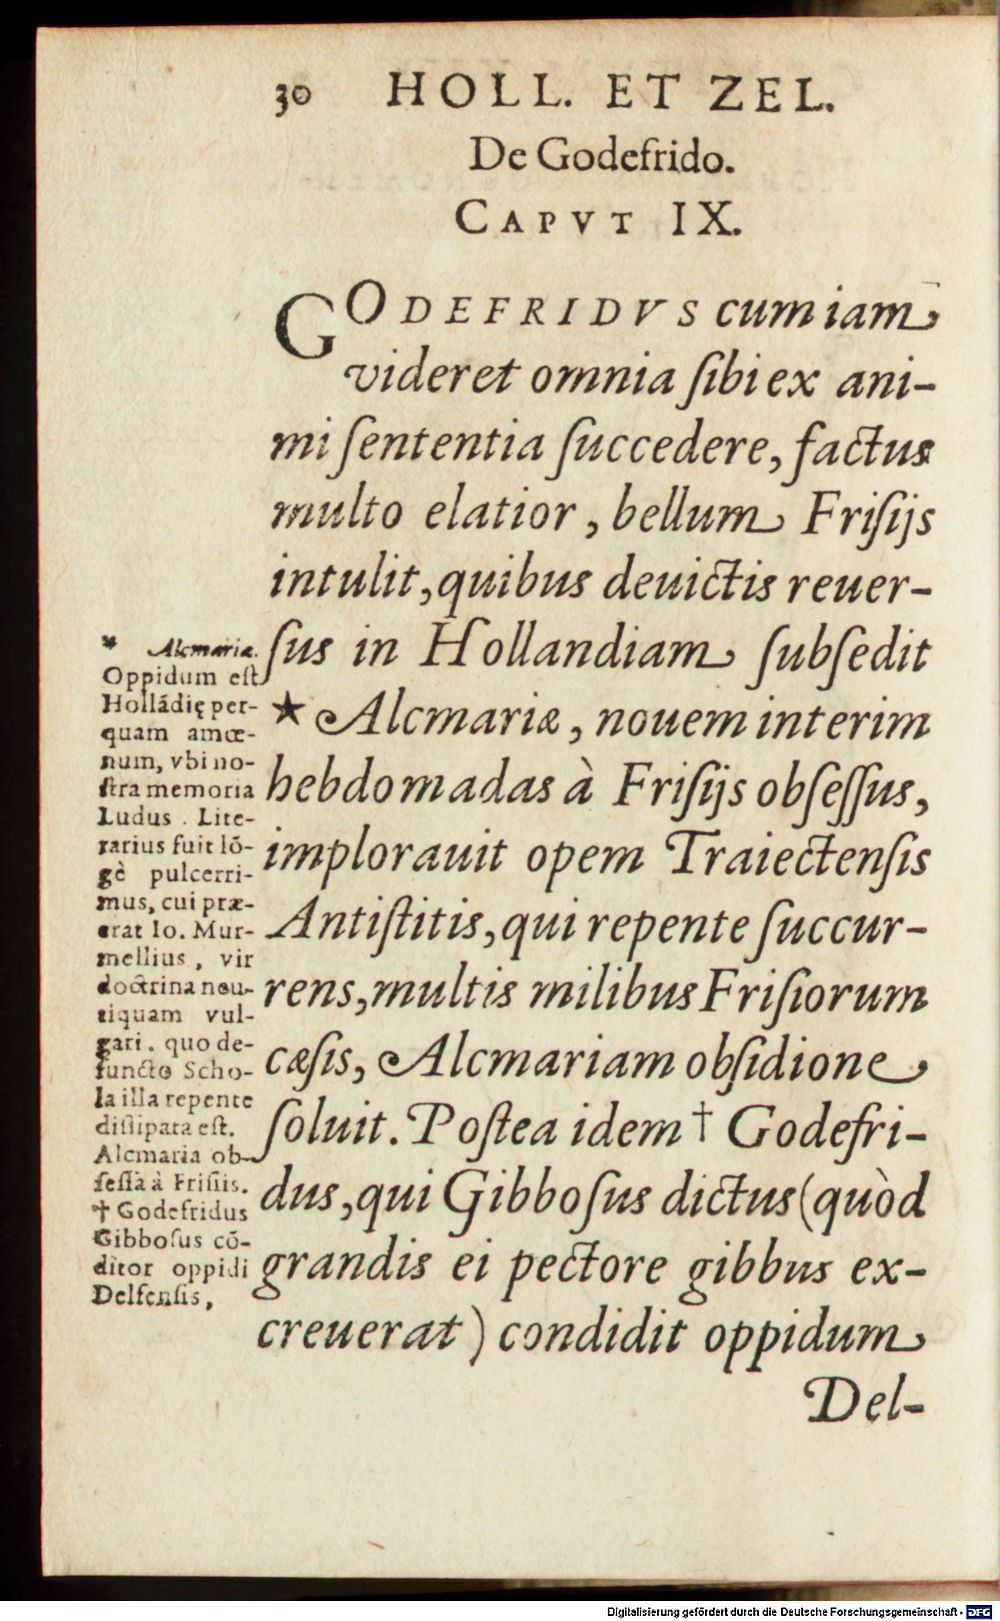 30 HOLL. ET ZEL.
De Godefrido.
CAPVT IX.
GODEFRIDVS cum iam
videret omnia ſibi ex ani-
mi ſententia ſuccedere, factus
multo elatior, bellum Friſijs
intulit, quibus deuictis reuer-
ſus in Hollandiam ſubſedit
★ Alcmariæ, nouem interim
hebdomadas à Friſijs obſeſſus,
implorauit opem Traiectenſis
Antiſtitis, qui repente ſuccur-
rens, multis milibus Friſiorum
cæſis, Alcmariam obſidione
ſoluit. Poſtea idem † Godefri-
dus, qui Gibboſus dictus (quòd
grandis ei pectore gibbus ex-
creuerat) condidit oppidum
Del-
* Alcmariæ.
Oppidum eſt
Hollādię per-
quam amœ-
num, vbi no-
ſtra memoria
Ludus . Lite-
rarius fuit lō-
gè pulcerri-
mus, cui præ-
erat Io. Mur-
mellius, vir
doctrina neu-
tiquam vul-
gari. quo de-
functo Scho-
la illa repente
diſſipata eſt.
Alcmaria ob-
ſeſſa à Friſiis.
† Godefridus
Gibboſus cō-
ditor oppidi
Delfenſis,
Digitalisierung gefördert durch die Deutsche Forschungsgemeinschaft - DFG